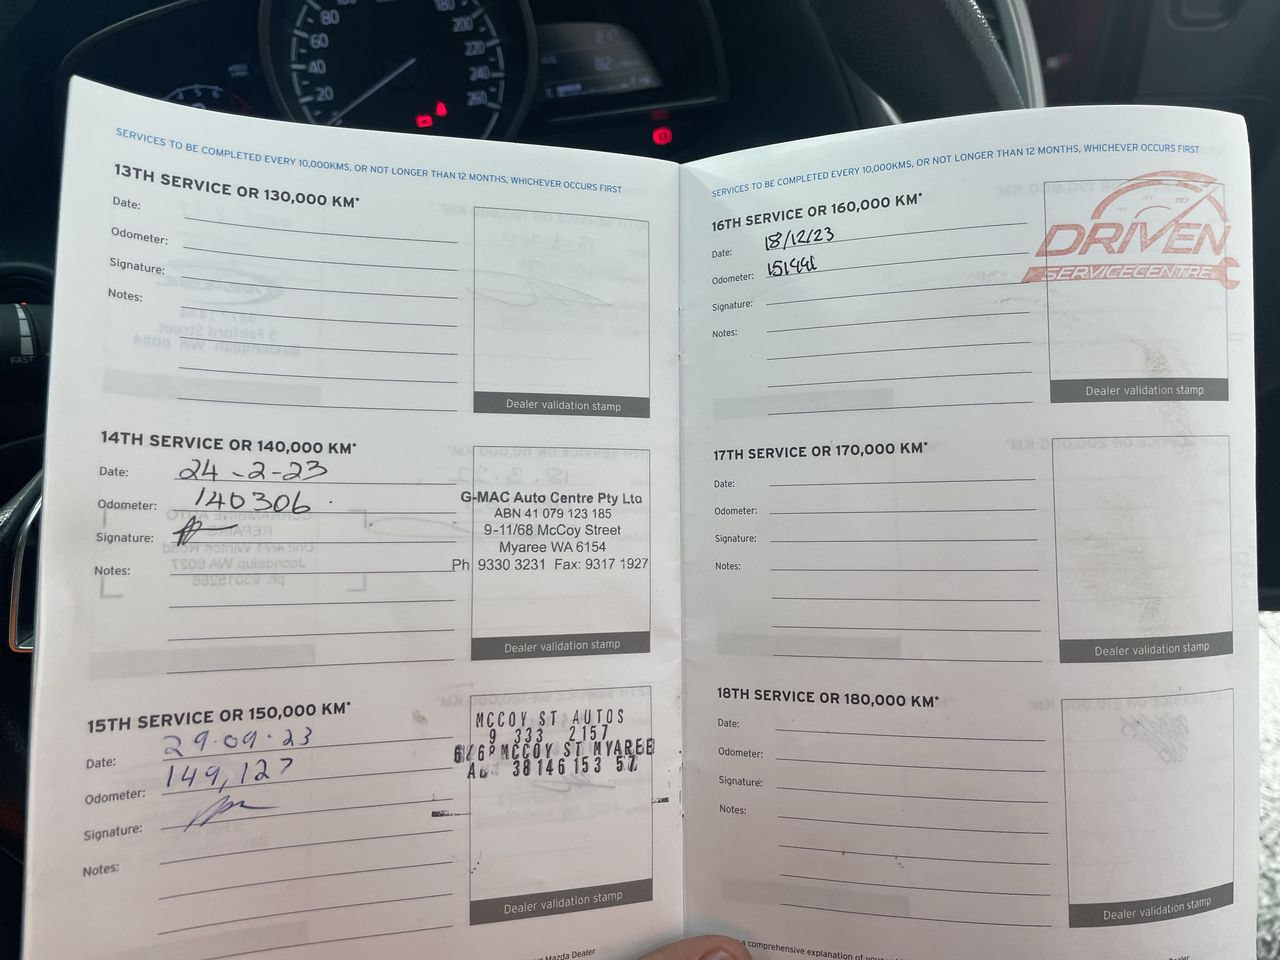 80
60
40
20
180
200
220
240
260
FAST
SERVICES TO BE COMPLETED EVERY 10,000KMS, OR NOT LONGER THAN 12 MONTHS, WHICHEVER OCCURS FIRST
13TH SERVICE OR 130,000 KM*
Date:
Odometer:
Signature:
Notes:
Dealer validation stamp
14TH SERVICE OR 140,000 KM*
Date: 24-2-23
Odometer: 140306
Signature:
Notes:
G-MAC Auto Centre Pty Ltd
ABN 41 079 123 185
9-11/68 McCoy Street
Myaree WA 6154
Ph 9330 3231 Fax: 9317 1927
Dealer validation stamp
15TH SERVICE OR 150,000 KM*
Date: 29.09.23
Odometer: 149,127
Signature:
Notes:
MCCOY ST AUTOS
9 333 2157
MCCOY ST MYAREE
38146 153 57
Dealer validation stamp
Mazda Dealer
SERVICES TO BE COMPLETED EVERY 10,000KMS, OR NOT LONGER THAN 12 MONTHS, WHICHEVER OCCURS FIRST
16TH SERVICE OR 160,000 KM*
Date: 18/12/23
Odometer:
Signature:
Notes:
DRIVEN
SERVICE CENTRE
Dealer validation stamp
17TH SERVICE OR 170,000 KM*
Date:
Odometer:
Signature:
Notes:
Dealer validation stamp
18TH SERVICE OR 180,000 KM*
Date:
Odometer:
Signature:
Notes:
Dealer validation stamp
a comprehensive explanation of